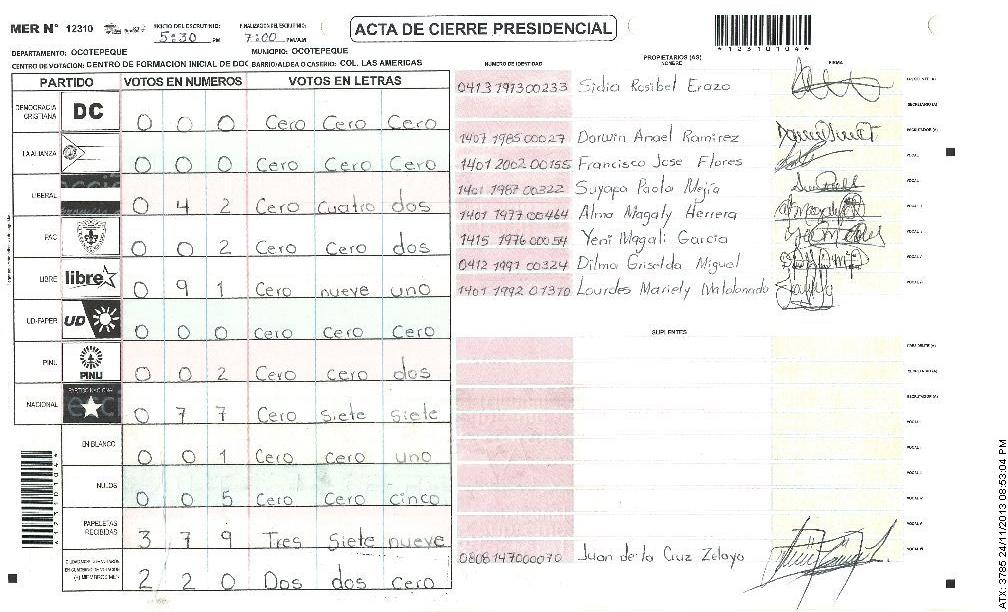 MER N° 12310
INICIO DEL ESCRUTINIO: 5:30 PM
FINALIZACION DEL ESCRUTINIO: 7:00 PM/AM
ACTA DE CIERRE PRESIDENCIAL
DEPARTAMENTO: OCOTEPEQUE MUNICIPIO: OCOTEPEQUE
CENTRO DE VOTACION: CENTRO DE FORMACION INICIAL DE DOC BARRIO/ALDEA O CASERIO: COL. LAS AMERICAS
PARTIDO VOTOS EN NUMEROS VOTOS EN LETRAS
DEMOCRACIA CRISTIANA DC 0 0 0 Cero Cero Cero
LA ALIANZA 0 0 0 Cero Cero Cero
LIBERAL 0 4 2 Cero cuatro dos
PAC 0 0 2 Cero Cero dos
LIBRE libre 0 9 1 Cero nueve uno
UD-FAPER UD 0 0 0 Cero Cero Cero
PINU PINU 0 0 2 Cero cero dos
NACIONAL PARTIDO NACIONAL 0 7 7 Cero siete siete
EN BLANCO 0 0 1 Cero cero uno
NULOS 0 0 5 Cero Cero cinco
PAPELETAS RECIBIDAS 3 7 9 Tres Siete nueve
2 2 0 Dos dos cero
NUMERO DE IDENTIDAD PROPIETARIOS (AS) NOMBRE FIRMA
0413 1973 00233 Sidia Rosibel Erazo
1407 1985 00027 Darwin Anael Ramirez
1401 2002 00155 Francisco Jose Flores
1401 1987 00322 Suyapa Paola Mejía
1401 1977 00464 Alma Magaly Herrera
1415 1976 00054 Yeni Magali Garcia
0412 1991 00324 Dilma Griselda Miguel
1401 1992 01370 Lourdes Mariely Maldonado
SUPLENTES
0808147000070 Juan de la Cruz Zelaya
ATX: 3785 24/11/2013 08:53:04 PM